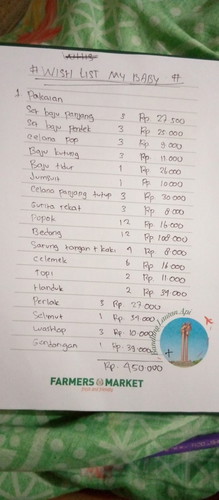 # WISH LIST MY BABY #
1. Pakaian
Set baju panjang 3 Rp. 27.500
Set baju pendek 3 Rp 25.000
Celana pop 3 Rp 9.000
Baju kutung 3 Rp. 11.000
Baju tidur 1 Rp 26.000
Jumpsuit 1 Rp 10.000
Celana panjang tutup 3 Rp 20.000
Rp 8.000
Popok 12 Rp 16.000
Bedong 12 Rp 108.000
Sarung tangan + kaki 4 Rp 8.000
Celemek 6 Rp 16.000
Topi 2 Rp 11.000
Handuk 2 Rp 34.000
Perlak 3 Rp 27.000
Selimut 1 Rp. 34.000
Washlap 3 Rp. 10.000
Gendongan 1 Rp. 38.000
Rp. 450.000
FARMERS MARKET